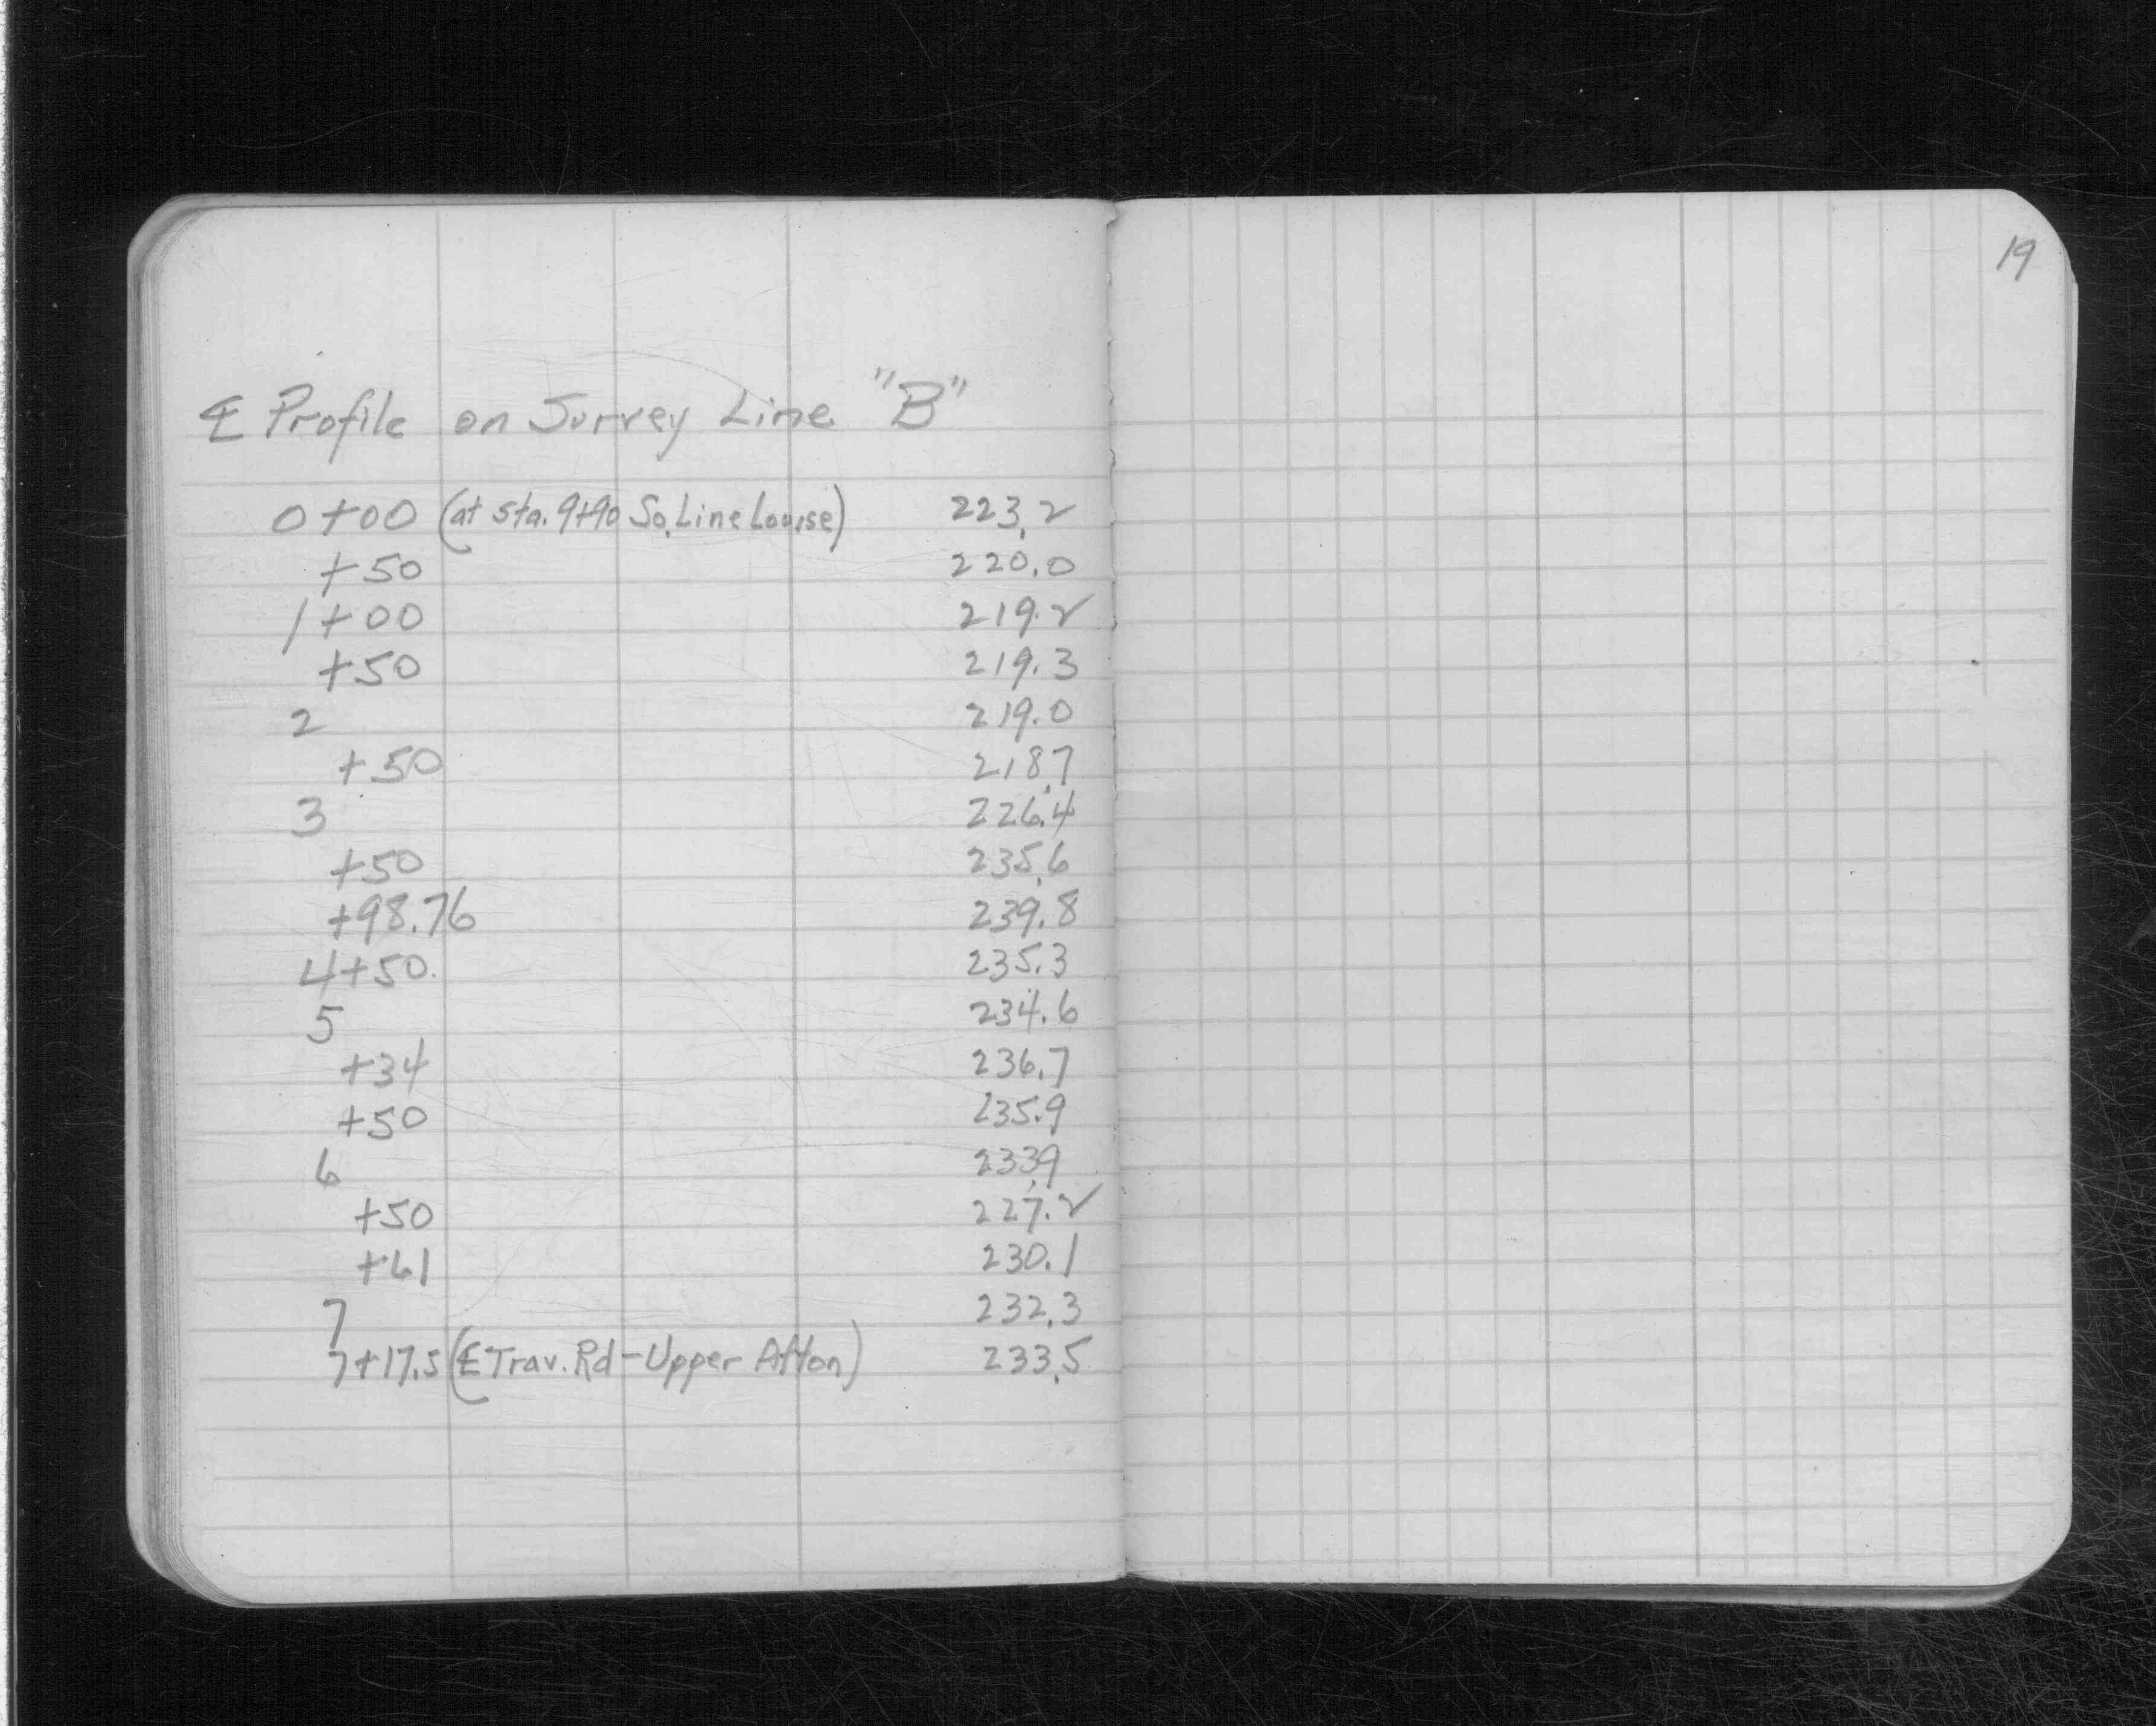 19
℄ Profile on Survey Line "B"
0+00 (at Sta. 9+90 So. Line Louise) 223.2
+50 220.0
1+00 219.2
+50 219.3
2 219.0
+50 218.7
3 226.4
+50 235.6
+98.76 239.8
4+50. 235.3
5 234.6
+34 236.7
+50 235.9
6 233.9
+50 227.2
+61 230.1
7 232.3
7+17.5 (℄ Trav. Rd - Upper Afton) 233.5